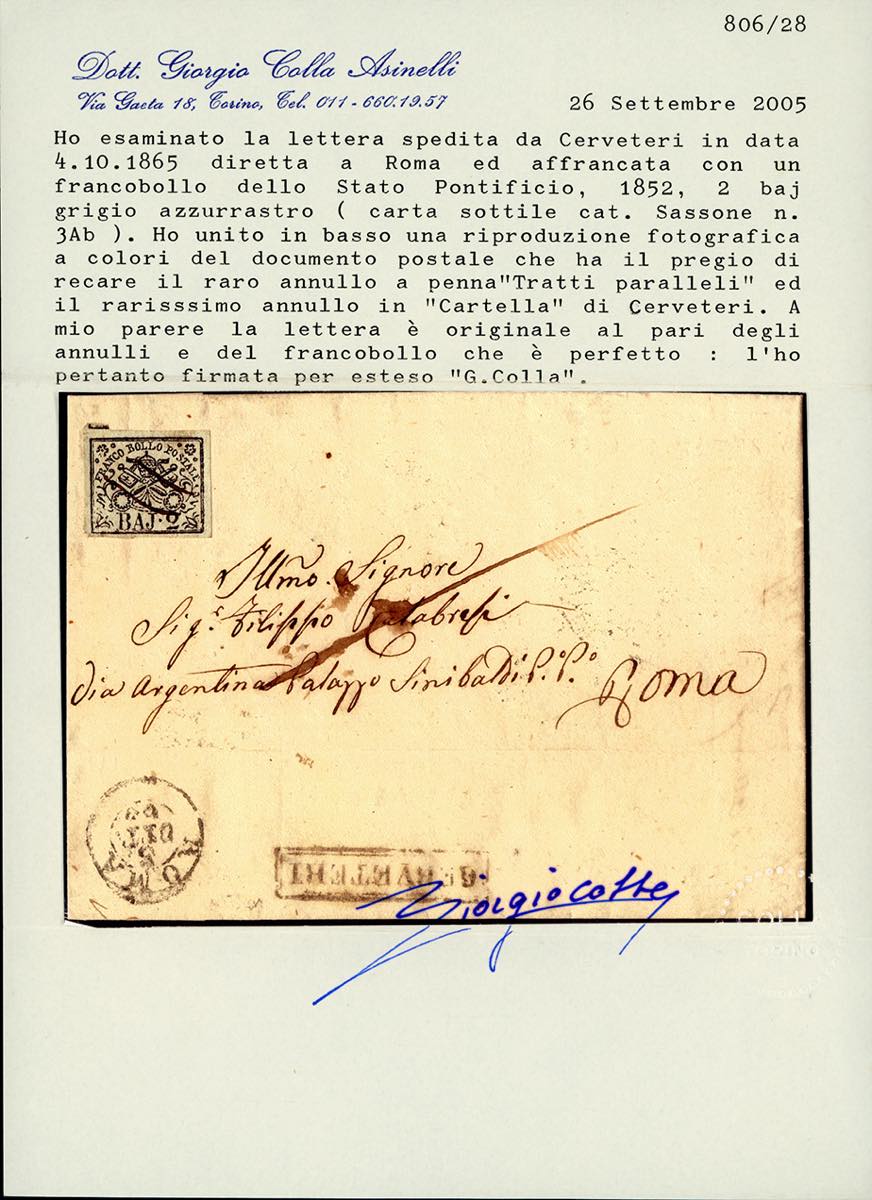 806/28
Dott. Giorgio Colla Asinelli
Via Gaeta 18, Torino, Tel. 011-660.19.57
26 Settembre 2005
Ho esaminato la lettera spedita da Cerveteri in data
4.10.1865 diretta a Roma ed affrancata con un
francobollo dello Stato Pontificio, 1852, 2 baj
grigio azzurrastro ( carta sottile cat. Sassone n.
3Ab ). Ho unito in basso una riproduzione fotografica
a colori del documento postale che ha il pregio di
recare il raro annullo a penna"Tratti paralleli" ed
il rarisssimo annullo in "Cartella" di Cerveteri. A
mio parere la lettera è originale al pari degli
annulli e del francobollo che è perfetto : l'ho
pertanto firmata per esteso "G.Colla".
FRANCO BOLLO POSTALE
BAJ. 2
Illmo. Signore
Sigr. Filippo Calabresi
Via Argentina Palazzo Sinibaldi P.o P.o
Roma
ROMA
OTT
CERVETERI
Giorgio Colla